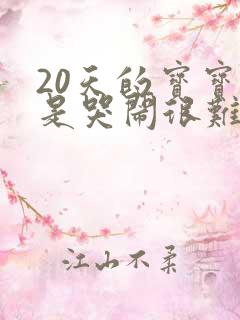 20天的寶寶
是哭鬧很難
江山不柔